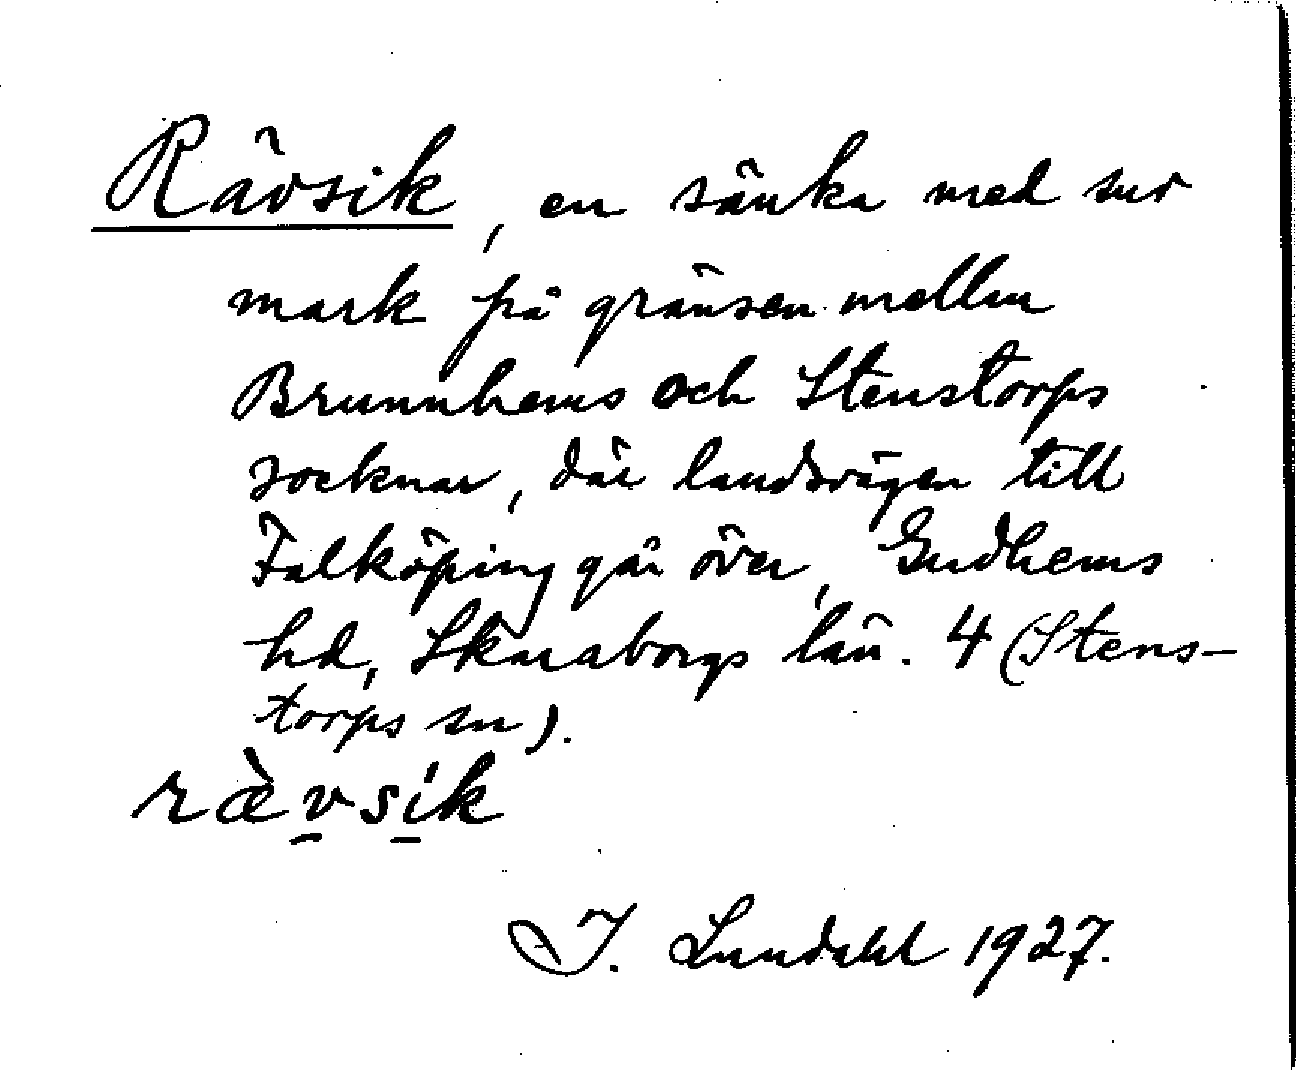 Rävsik, en sänka med sur
mark på gränsen mellan
Brunnhems och Stenstorps
socknar, där landsvägen till
Falköping går över, Gudhems
hd, Skaraborgs län. 4 (Stens-
torps sn).
ræ̀vsík
I. Lundahl 1927.